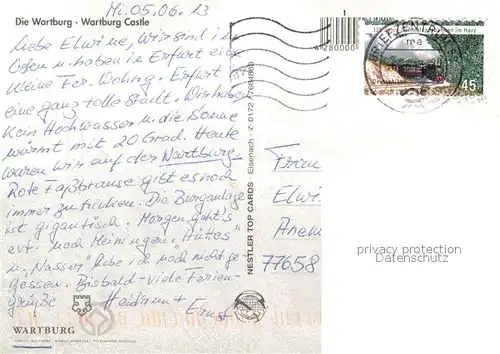 Mi. 05.06.13
Die Wartburg · Wartburg Castle
Liebe Elwine, wir sind im
Osten u. haben in Erfurt eine
kleine Fer.-Wohng. Erfurt ist
eine ganz tolle Stadt. Wir haben
kein Hochwasser u. die Sonne
wärmt mit 20 Grad. Heute
waren wir auf der Wartburg.
Rote Faßbrause gibt es noch
immer zu trinken. Die Burganlage
ist gigantisch. Morgen geht's
evt. nach Meiningen. "Hütes"
u. "Nasser" habe ich noch nicht ge-
gessen. Bis bald - viele Ferien-
grüße Heidrun + Ernst
WARTBURG
NESTLER TOP CARDS · Eisenach
4 280000
im Harz
45
Frau
Elwi
Anem
77658
privacy protection
Datenschutz